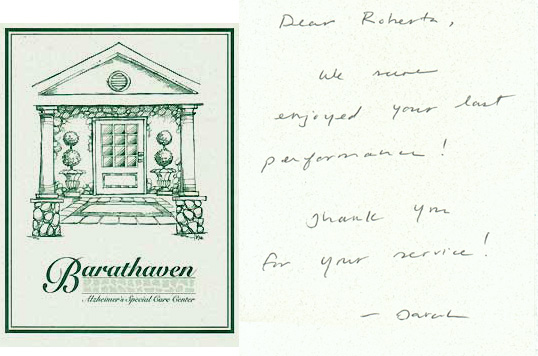 Barathaven
Alzheimer's Special Care Center
Dear Roberta,
We sure
enjoyed your last
performance!
Thank you
for your service!
- Sarah